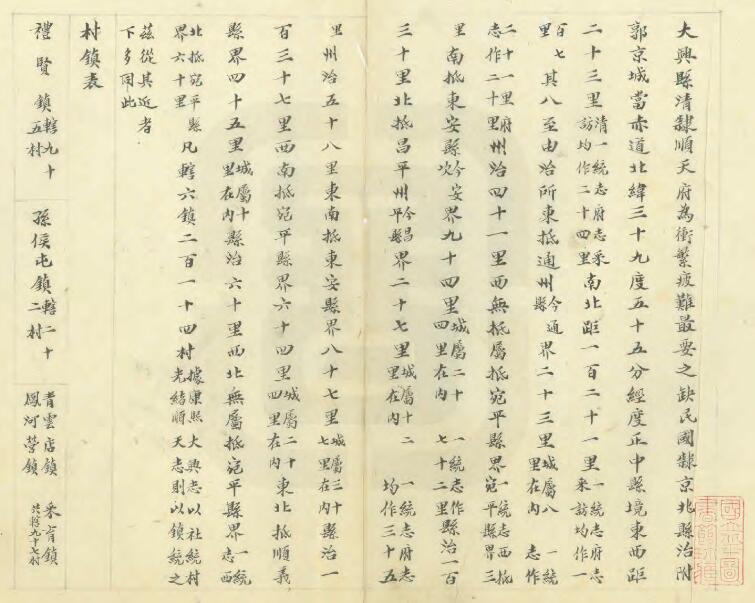 大興縣清隸順天府為衝繁疲難最要之缺民國隸京兆縣治附
郭京城當赤道北緯三十九度五十五分經度正中縣境東西距
二十三里清一統志府志采訪均作二十四里南北距一百二十一里一統志府志采訪均作一
百七里其八至由治所東抵通州今通縣界二十三里城屬八里在內一統志作
二十一里府志作二十里州治四十一里西無抵屬抵宛平縣界一統志西抵宛平縣界三
里南抵東安縣今安次界九十四里城屬二十四里在內一統志作七十二里縣治一百
三十里北抵昌平州今昌平縣界二十七里城屬十二里在內一統志府志均作三十五
里州治五十八里東南抵東安縣界八十七里城屬三十七里在內縣治一
百三十七里西南抵宛平縣界六十四里城屬二十四里在內東北抵順義
縣界四十五里城屬十里在內縣治六十里西北無屬抵宛平縣界一統志西
北抵宛平縣界六十里凡轄六鎮二百一十四村據康熙大興志以社統村光緒順天志則以鎮統之
茲從其近者下多同此
村鎮表
禮賢鎮轄九十五村
孫侯屯鎮轄二十二村
青雲店鎮 采育鎮
鳳河營鎮 共轄九十七村